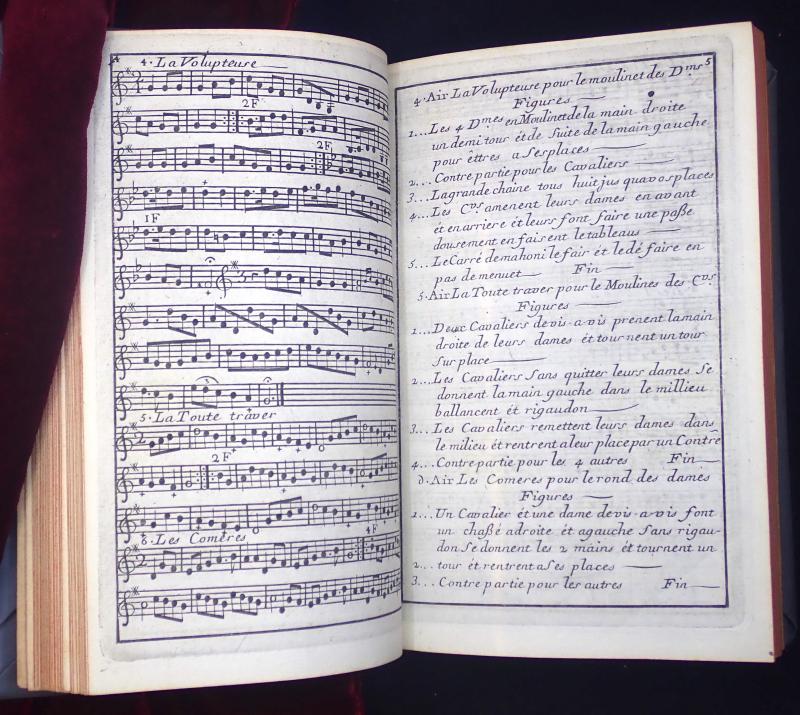 4
4. La Volupteuse
2F
2F
1F
5. La Toute traver
2F
6. Les Comeres
4F
5
4. Air La Volupteuse pour le moulinet des D.mes
Figures
1... Les 4 D.mes en Moulinet de la main droite
un demi tour ét de Suite de la main gauche
pour éttres a Ses places
2... Contre partie pour les Cavaliers
3... La grande chaine tous huit jus qua vos places
4... Les C.vrs amenent leurs dames en avant
ét en arriere ét leurs font faire une paße
dousement en faisent le tableaus
5... Le Carré de mahoni le fair ét le dé faire en
pas de menuet Fin
5. Air La Toute traver pour le Moulines des C.vrs
Figures
1... Deux Cavaliers de vis-a-vis prenent la main
droite de leurs dames ét tournent un tour
Sur place
2... Les Cavaliers Sans quitter leurs dames Se
donnent la main gauche dans le millieu
ballancent ét rigaudon
3... Les Cavaliers remettent leurs dames dans
le milieu ét rentrent a leur place par un Contre
4... Contre partie pour les 4 autres Fin
6. Air Les Comeres pour le rond des damés
Figures
1... Un Cavalier ét une dame de vis-a-vis font
un chaßé a droite ét a gauche Sans rigau-
don Se donnent les 2 mains ét tournent un
2... tour ét rentrent a Ses places
3... Contre partie pour les autres Fin